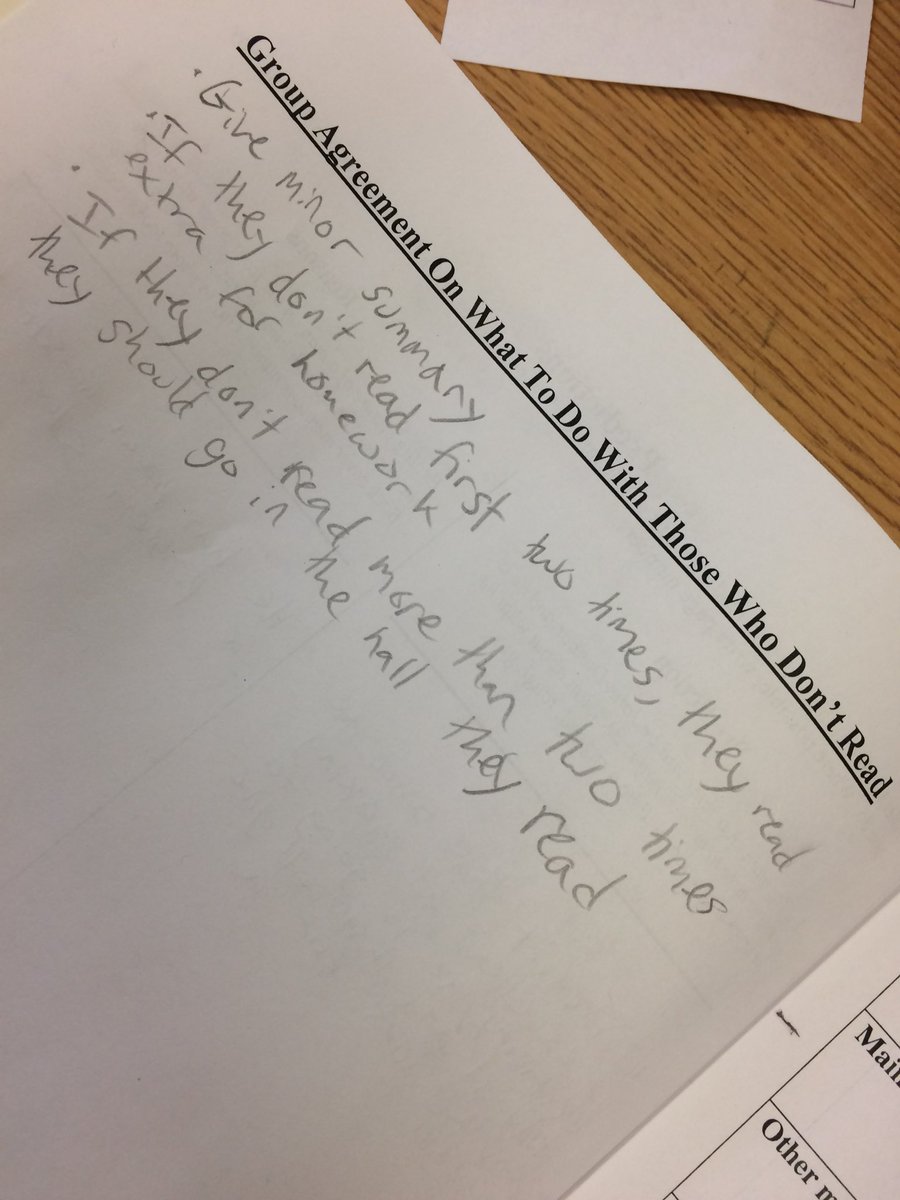 Group Agreement On What To Do With Those Who Don't Read
· Give minor summary
· If they don't read first two times, they read
extra for homework
· If they don't read more than two times
they should go in the hall they read
Other